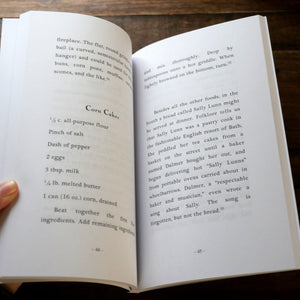 fireplace. The flat, round
bail (a curved, semicircular
used because they could be
buns, corn pone, muffins,
scones, and the like.
Corn Cakes
½ c. all-purpose flour
Pinch of salt
Dash of pepper
2 eggs
3 tbsp. milk
¼ lb. melted butter
1 can (16 oz.) corn, drained
Beat together the first
ingredients. Add remaining ingredients
- 44 -
and mix thoroughly. Drop by
tablespoons onto a hot griddle. When
lightly browned on the bottom, turn.
Besides all the other foods, in the
South a bread called Sally Lunn might
be served at dinner. Folklore tells us
that Sally Lunn was a pastry cook in
the fashionable English resort of Bath.
She peddled her tea cakes from a
basket on the street until a baker
named Dalmer bought her out, and
began delivering hot "Sally Lunns"
from portable ovens carried about in
wheelbarrows. Dalmer, a "respectable
baker and musician," even wrote a
song about Sally. The song is
forgotten, but not the bread.
- 45 -